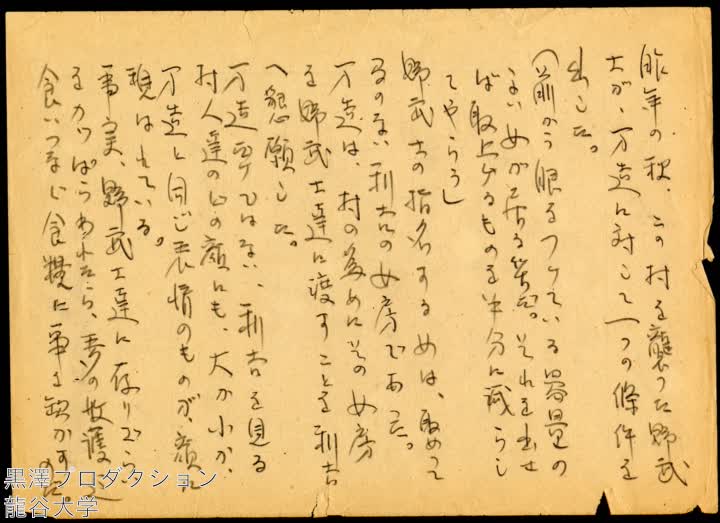 昨年の秋、この村を襲つた野武
士が、万造に対して一つの條件を
出した。
（前から眼をつけている器量の
よい女が居る筈だ。それを出せ
ば取上げるものを半分に減らし
てやらう」
野武士の指名する女は、極めて
るのない利吉の女房であつた。
万造は、村の為めにその女房
を野武士達に渡すことを利吉
へ懇願した。
万造丈ではない、利吉を見る
村人達のどの顔にも、大か小か、
万造と同じ表情のものが、顔に
現はれている。
事実、野武士達に有りつたけ
をかつぱらわれたら、麦の收護迄
食いつなぐ食糧に事を缺かすのだ。
黒澤プロダクション
龍谷大学